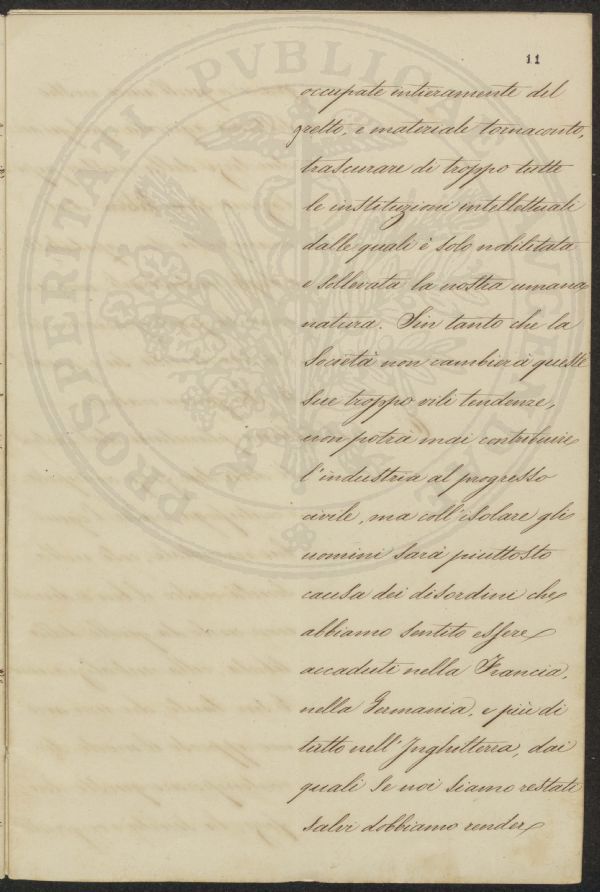 11
occupate intieramente del
gretto, e materiale tornaconto,
trascurare di troppo tutte
le instituzioni intellettuali
dalle quali è solo nobilitata
e sollevata la nostra umana
natura. Sin tanto che la
Società non cambierà queste
sue troppo vili tendenze,
non potrà mai contribuire
l'industria al progresso
civile, ma coll'isolare gli
uomini sarà piuttosto
causa dei disordini che
abbiamo sentito essere
accaduti nella Francia,
nella Germania, e più di
tutto nell'Inghilterra, dai
quali se noi siamo restati
salvi dobbiamo render
PROSPERITATI PVBLICAE AVGENDAE